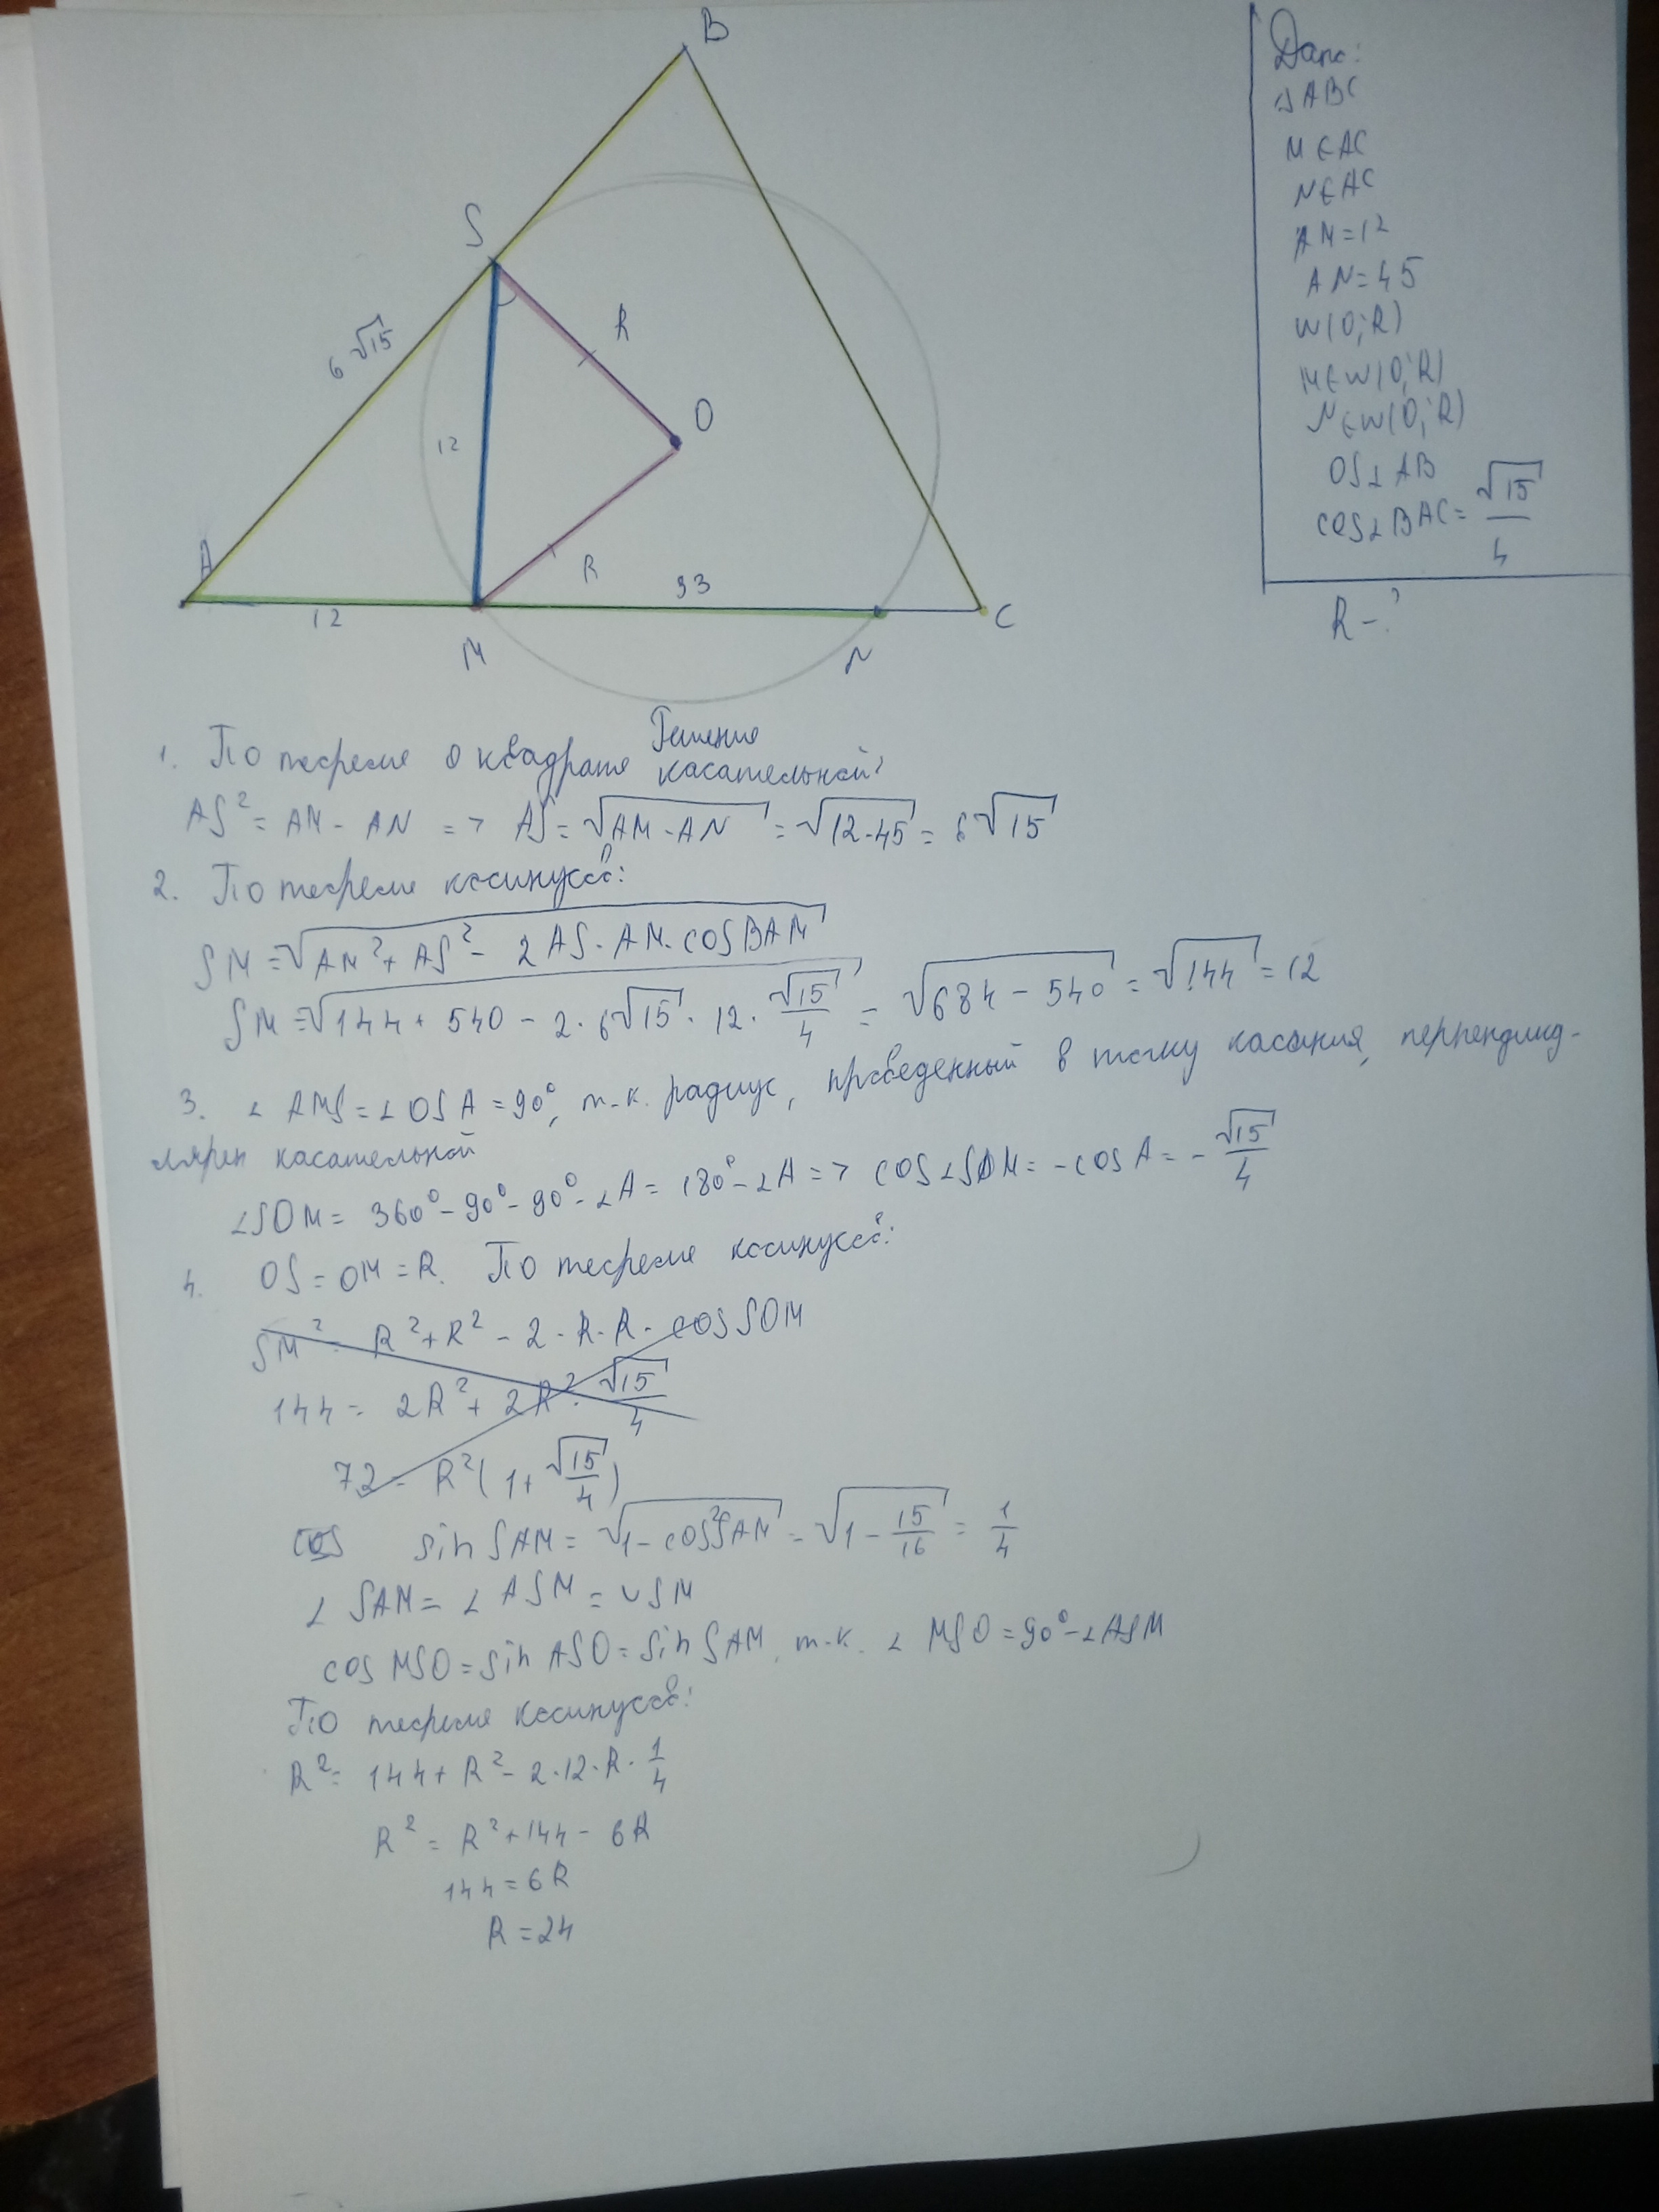 B
S
6√15
R
O
12
A
R
93
12
M
N
C
Дано:
△ABC
M∈AC
N∈AC
AM=12
AN=45
W(O;R)
M∈W(O;R)
N∈W(O;R)
OS⊥AB
cos∠BAC=√15/4
R-?
Решение
1. По теореме о квадрате касательной:
AS²=AM·AN => AS=√(AM·AN)=√(12·45)=6√15
2. По теореме косинусов:
SM=√(AM²+AS²-2AS·AM·cosBAM)
SM=√(144+540-2·6√15·12·√15/4)=√(684-540)=√144=12
3. ∠AMS=∠OSA=90°, т-к. радиус, проведенный в точку касания, перпендику-
лярен касательной
∠SOM=360°-90°-90°-∠A=180°-∠A=> cos∠SOM=-cosA=-√15/4
4. OS=OM=R. По теореме косинусов:
SM²=R²+R²-2·R·R·cosSOM
144=2R²+2R²·√15/4
72=R²(1+√15/4)
cos sinSAM=√(1-cos²SAM)=√(1-15/16)=1/4
∠SAM=∠ASM=◡SM
cosMSO=sinASO=sinSAM, т-к. ∠MSO=90°-∠ASM
По теореме косинусов:
R²=144+R²-2·12·R·1/4
R²=R²+144-6R
144=6R
R=24